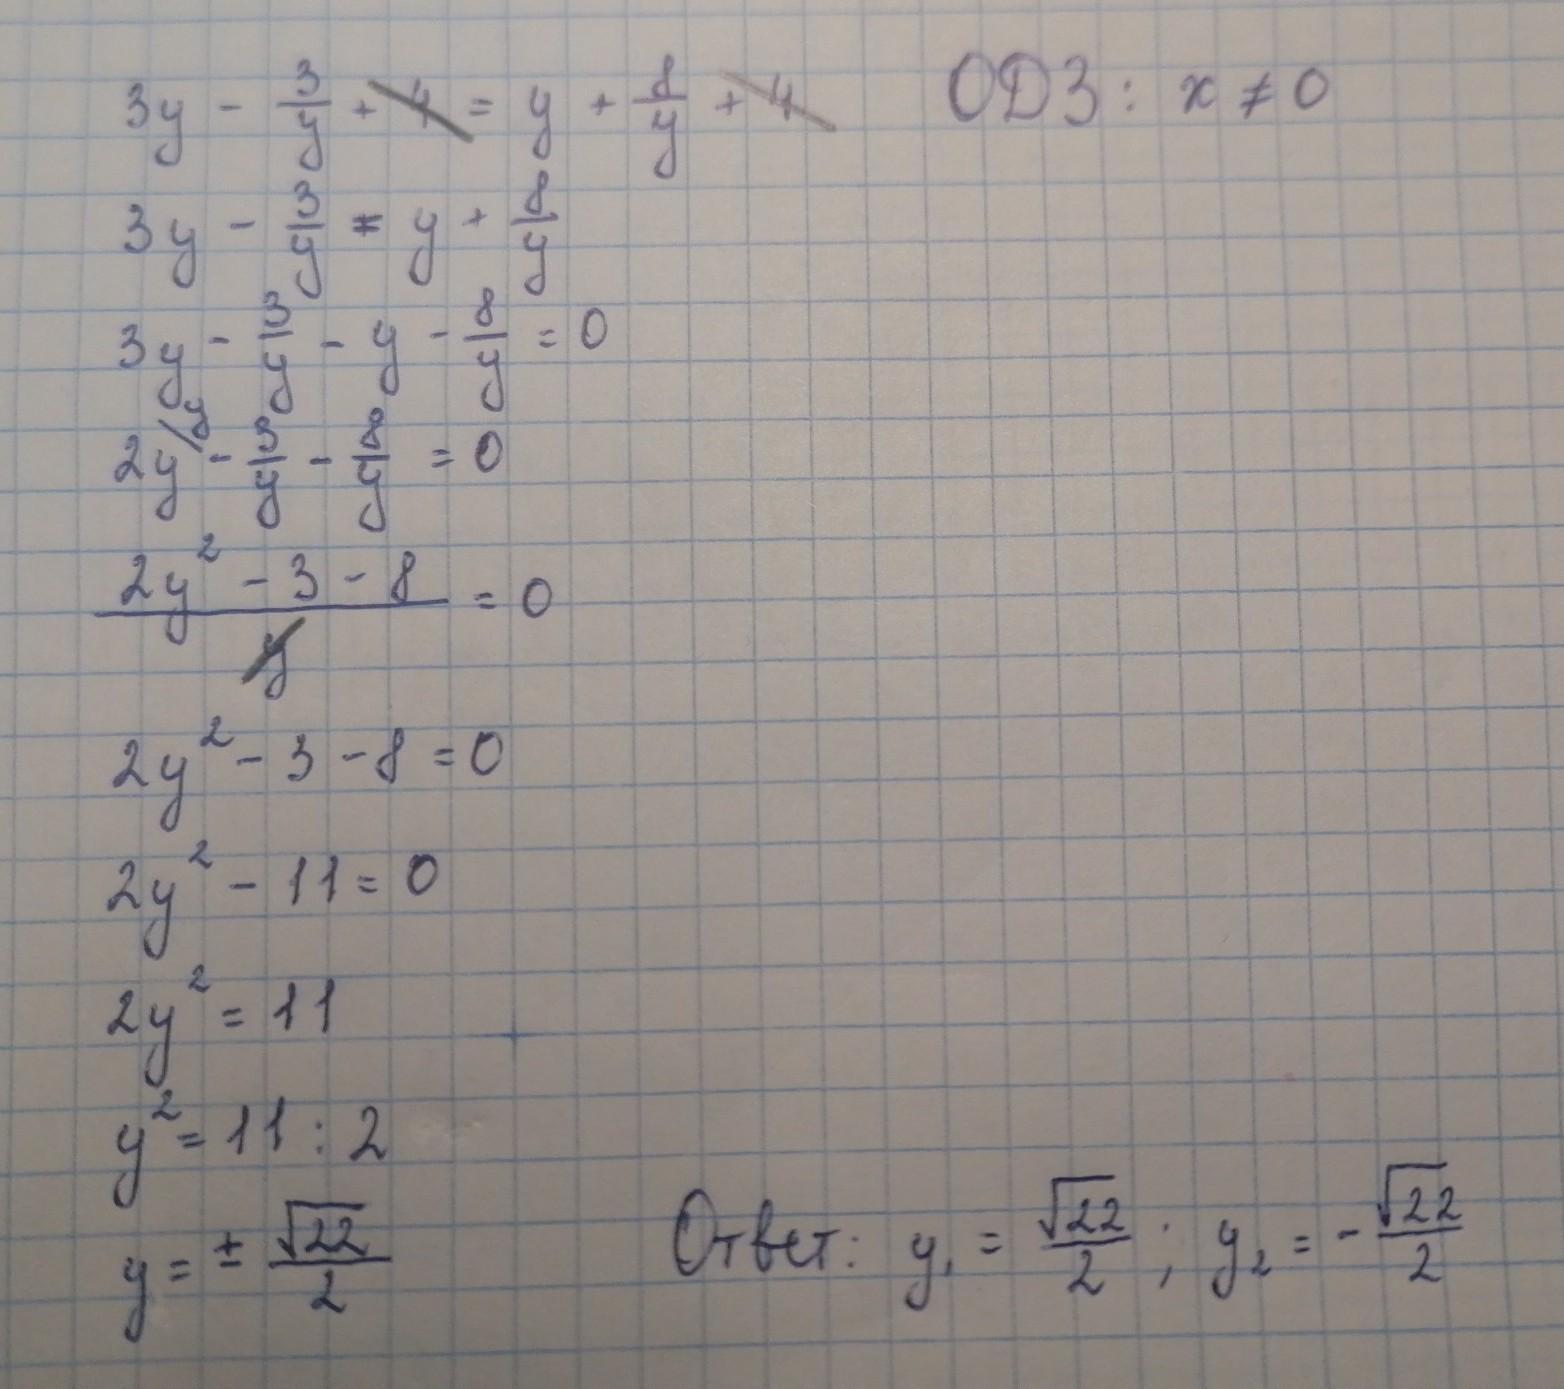 3y - 3/y + 4 = y + 8/y + 4 ОДЗ: x ≠ 0
3y - 3/y = y + 8/y
3y - 3/y - y - 8/y = 0
2y/y - 3/y - 8/y = 0
(2y² - 3 - 8)/y = 0
2y² - 3 - 8 = 0
2y² - 11 = 0
2y² = 11
y² = 11 : 2
y = ± √22/2 Ответ: y₁ = √22/2 ; y₂ = - √22/2